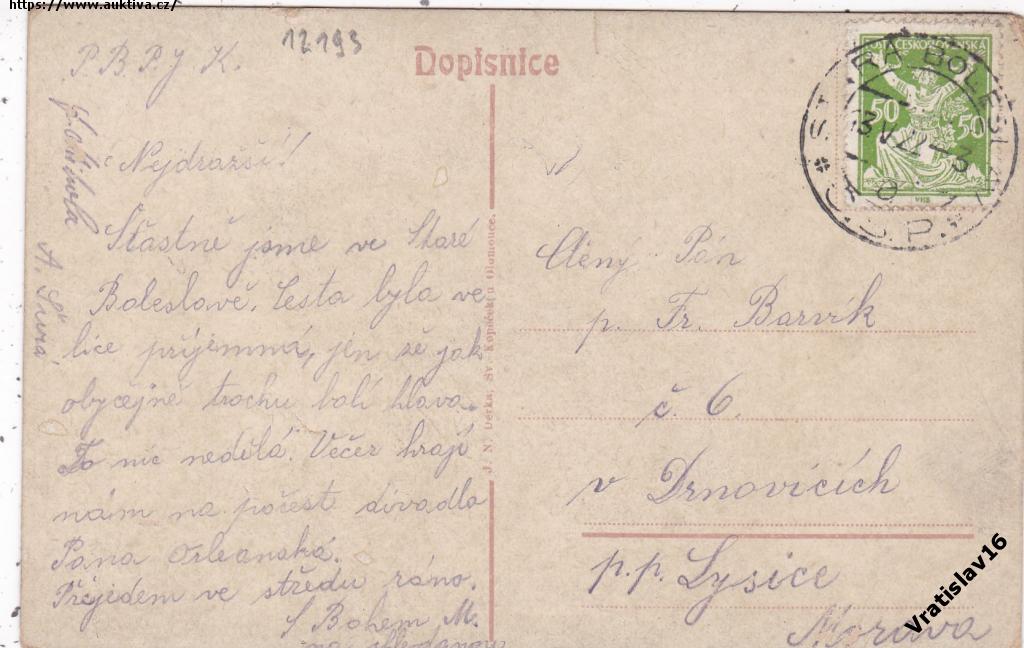 https://www.auktiva.cz/
12193
Dopisnice
P. B. P. J. K.
Nejdražší!
Šťastně jsme ve Staré
Boleslavě. Cesta byla ve
lice příjemná, jen že jak
obyčejně trochu bolí hlava.
To nic nedělá. Večer hrají
nám na počest divadlo
Pana Orleanská.
Přijedem ve středu ráno.
S Bohem M.
na shledanou
A. Šurá
J. N. Derka, Sv. Kopeček u Olomouce.
POŠTA ČESKOSLOVENSKÁ
50 50
STARÁ BOLESLAV
13 V 22 - 3
Č.S.P.
Ctěný Pán
p. Fr. Barvík
č. 6.
v Drnovicích
p. p. Lysice
Morava
Vratislav16